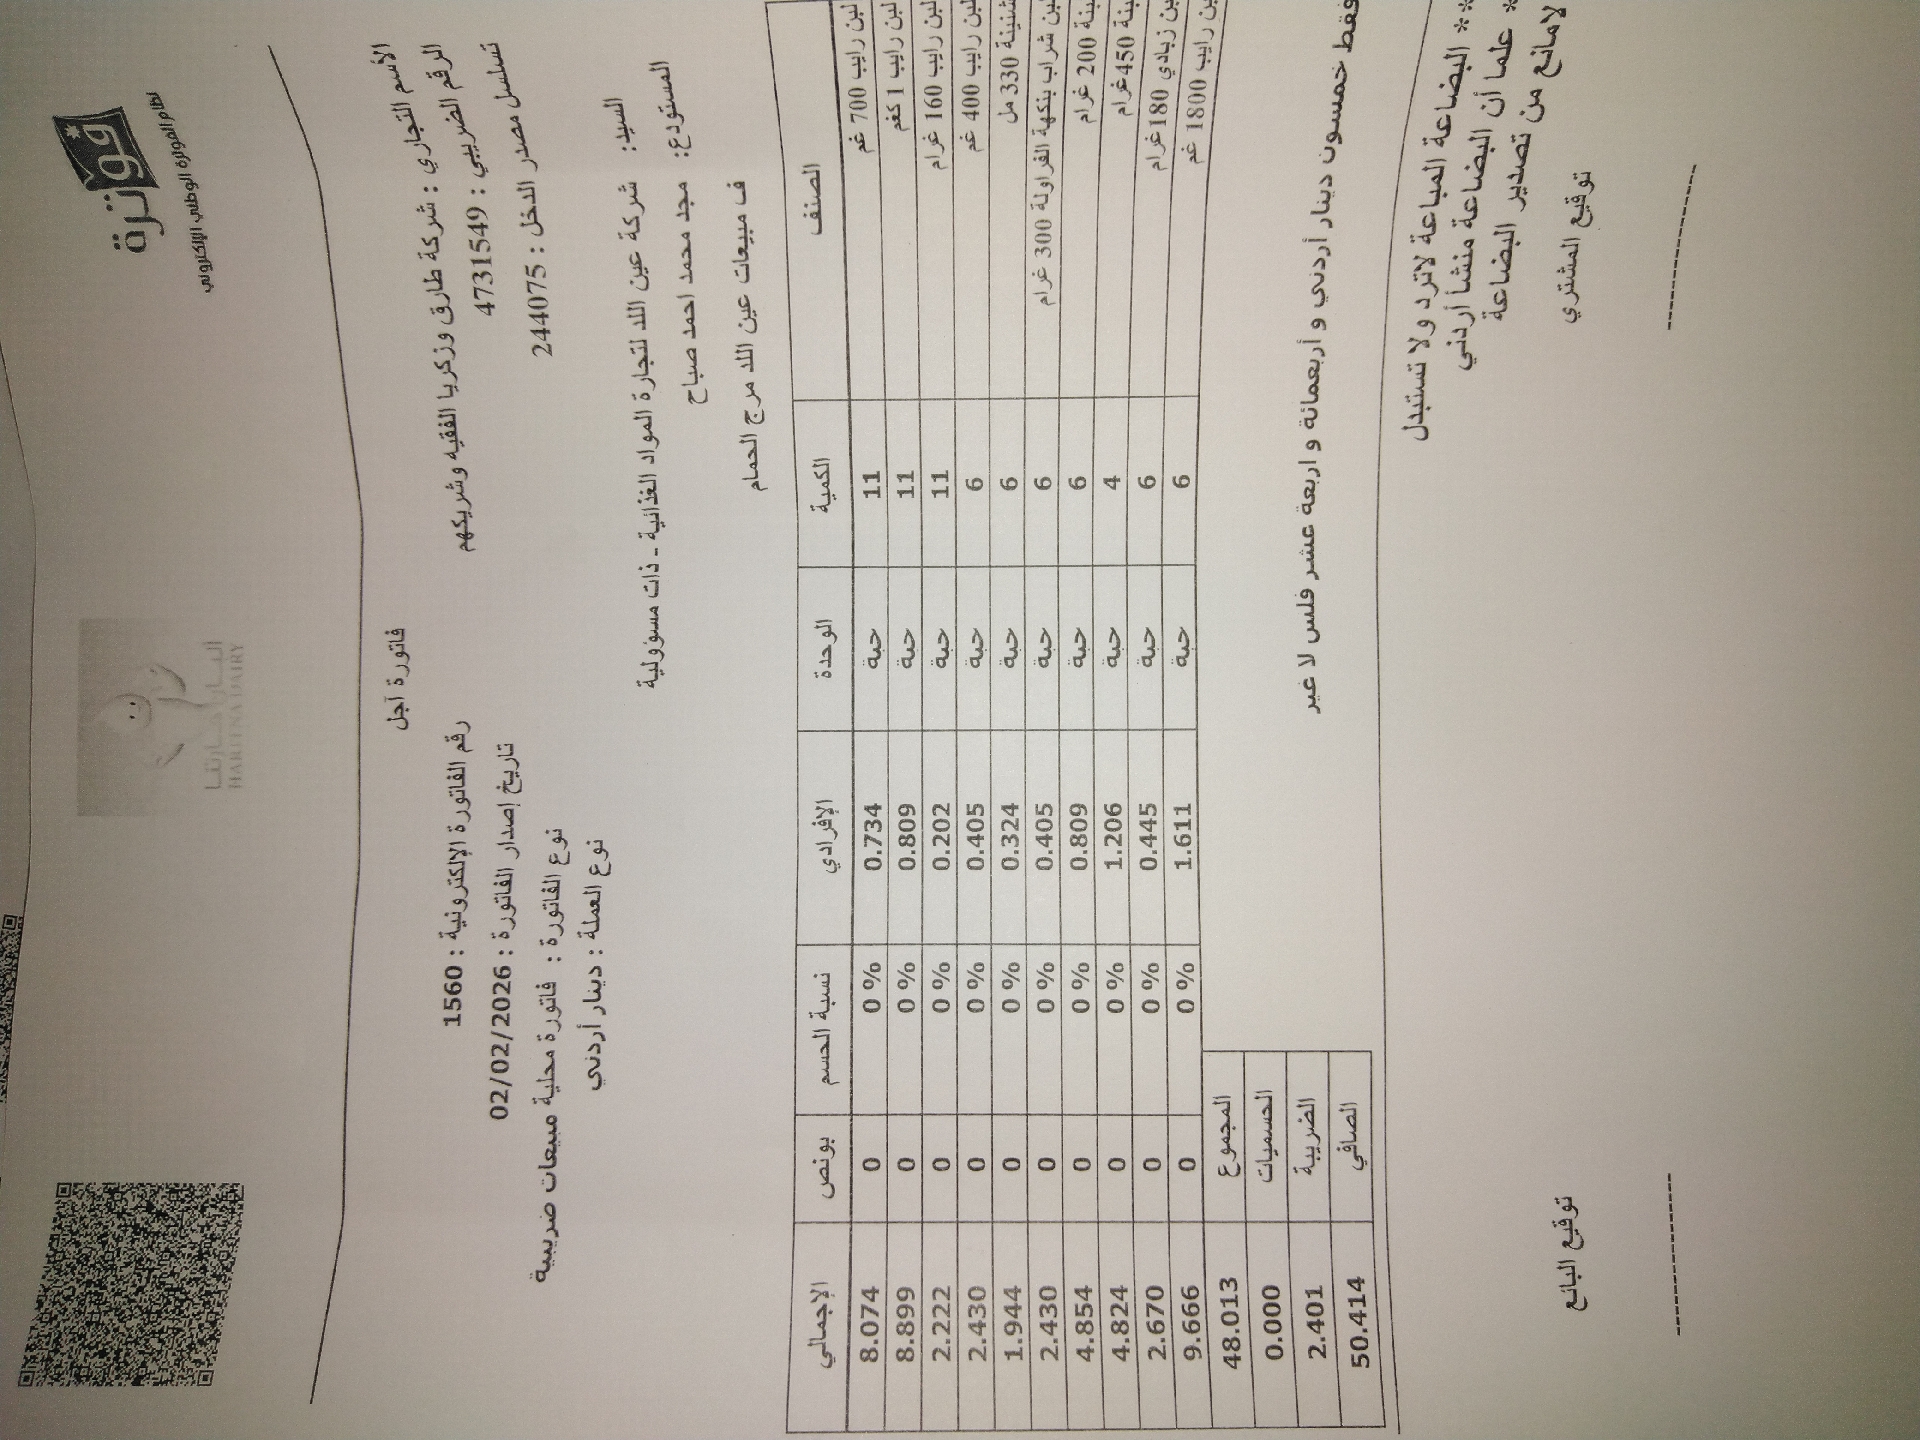 فوترة
نظام الفوترة الوطني الإلكتروني
البان حارتنا
HARITNA DAIRY
فاتورة آجل
الأسم التجاري : شركة طارق وزكريا الفقيه وشريكهم
الرقم الضريبي : 4731549
تسلسل مصدر الدخل : 244075
رقم الفاتورة الإلكترونية : 1560
تاريخ إصدار الفاتورة : 02/02/2026
نوع الفاتورة : فاتورة محلية مبيعات ضريبية
نوع العملة : دينار أردني
السيد: شركة عين اللد لتجارة المواد الغذائية - ذات مسؤولية
المستودع: مجد محمد احمد صباح
ف مبيعات عين اللد مرج الحمام
الصنف الكمية الوحدة الإفرادي نسبة الحسم بونص الإجمالي
لبن رايب 700 غم 11 حبة 0.734 0 % 0 8.074
لبن رايب 1 كغم 11 حبة 0.809 0 % 0 8.899
لبن رايب 160 غرام 11 حبة 0.202 0 % 0 2.222
لبن رايب 400 غم 6 حبة 0.405 0 % 0 2.430
شنينة 330 مل 6 حبة 0.324 0 % 0 1.944
لبن شراب بنكهة الفراولة 300 غرام 6 حبة 0.405 0 % 0 2.430
200 غرام 6 حبة 0.809 0 % 0 4.854
450غرام 4 حبة 1.206 0 % 0 4.824
زبادي 180غرام 6 حبة 0.445 0 % 0 2.670
رايب 1800 غم 6 حبة 1.611 0 % 0 9.666
المجموع 48.013
الحسميات 0.000
الضريبة 2.401
الصافي 50.414
فقط خمسون دينار أردني و أربعمائة و اربعة عشر فلس لا غير
** البضاعة المباعة لاترد ولا تستبدل
* علما أن البضاعة منشأ أردني
لامانع من تصدير البضاعة
توقيع المشتري
توقيع البائع